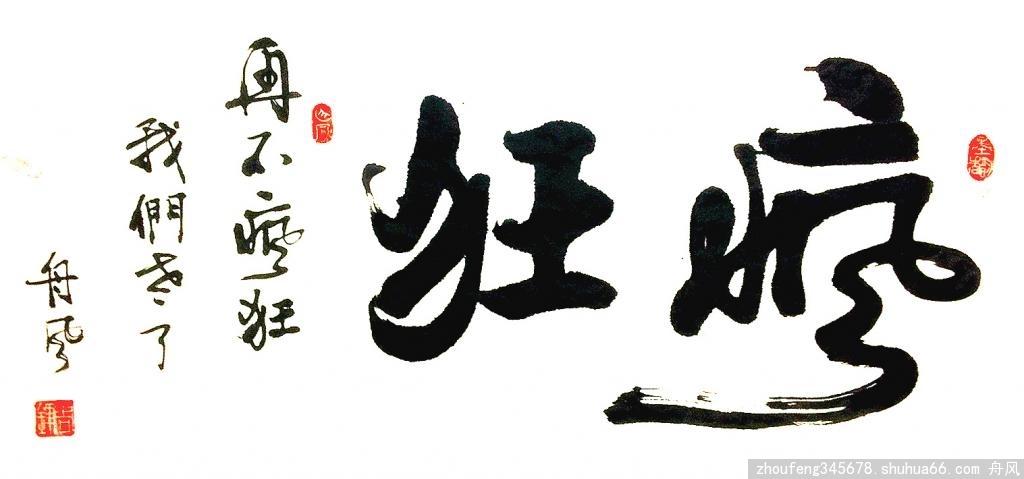 瘋狂
再不瘋狂
我們老了
舟风
zhoufeng345678.shuhua66.com 舟风